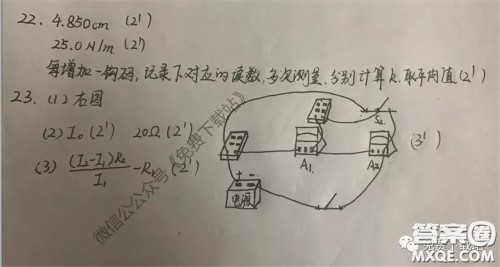 22. 4.850cm (2')
25.0 N/m (2')
每增加一钩码，记录下对应的读数，多次测量，分别计算k，取平均值(2')
23. (1) 右图
(2) I₀ (2') 20Ω (2')
(3) (I₂-I₁)R₂/I₁ - R₁ (2')
S₂
A₁
A₂
(3')
+ -
电源
微信公众号《免费下载站》
答案圈
MXQE.COM